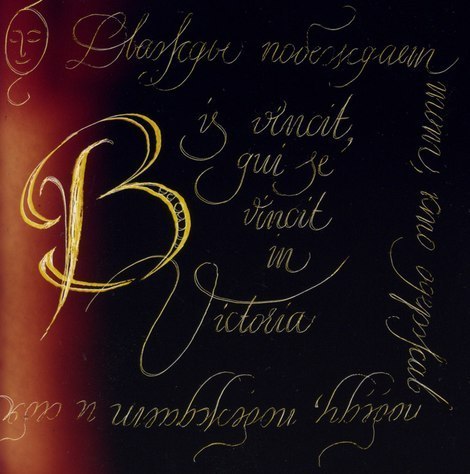 Дважды побеждает
тот, кто одержав
победу, побеждает и себя
Bis vincit,
qui se
vincit
in
Victoria